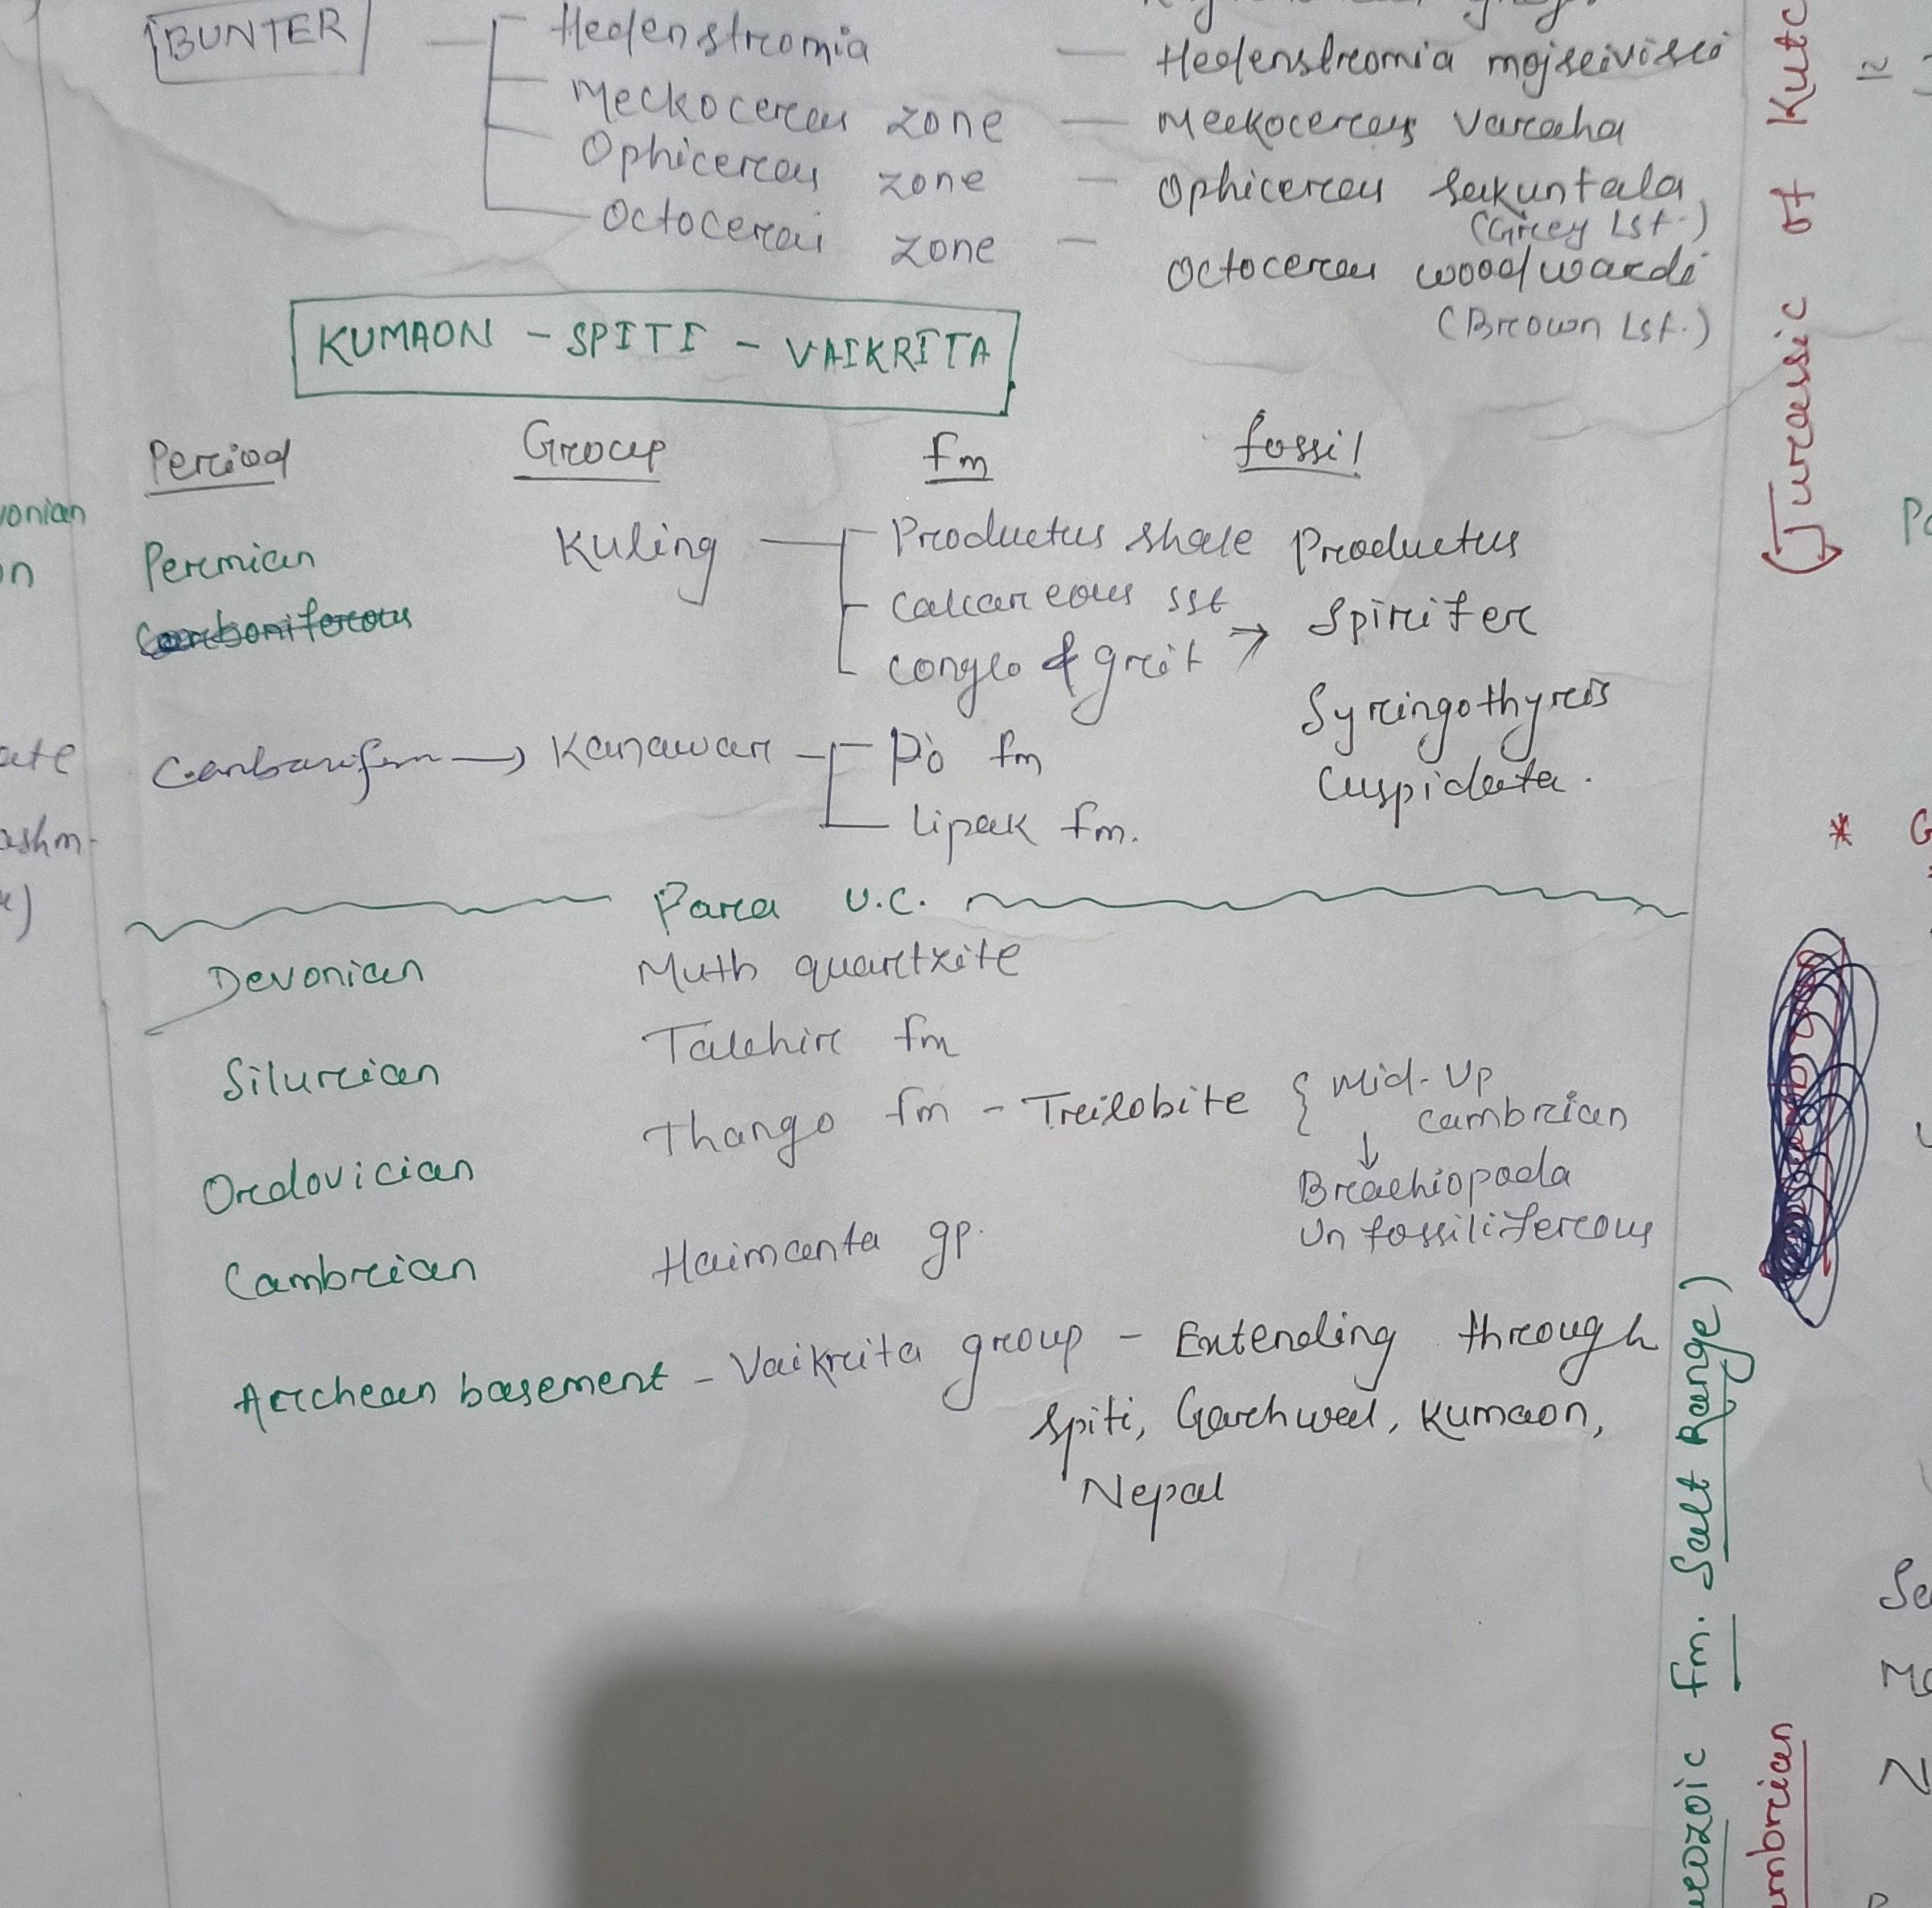 BUNTER — Hedenstromia — Hedenstromia mojseivisci
Meckoceras zone — Meekoceras Varaha
Ophiceras zone — Ophiceras Sakuntala
(Grey Lst.)
Octoceras zone — Octoceras woodwardi
(Brown Lst.)
KUMAON - SPITI - VAIKRITA
Period Group fm fossil
Permian Kuling — Productus shale Productus
Carboniferous calcareous sst
conglo & grit → Spirifer
Syringothyris
Cuspidata.
→ Kanawar — Po fm
Lipak fm.
Para U.C.
Devonian Muth quartzite
Silurian Takchir fm
Thango fm - Trilobite { Mid-Up
cambrian
↓
Ordovician Brachiopoda
Unfossiliferous
Cambrian Haimanta gp.
Archean basement - Vaikrita group - Extending through
Spiti, Garhwal, Kumaon,
Nepal
vonian
on
ate
ashm-
(Jurassic of Kutc
fm. Salt Range)
eozoic
mbrian
* G
Se